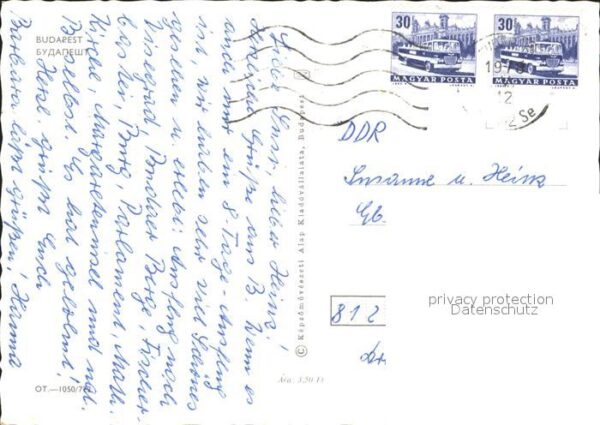 BUDAPEST
БУДАПЕШТ
Liebe Susi, lieber Heinz!
Herzliche Grüße aus B. Wenn es
auch nur ein 8 Tage-Ausflug
ist, wir haben sehr viel Schönes
gesehen u. erlebt: Ausflug nach
Visegrad, Budaer Berge, Fischer-
bastei, Burg, Parlament, Math.
Kirche, Margareteninsel und nat.
selbst. Es hat gelohnt!
Herzl. grüßt Euch
Hanna
Barbara läßt grüßen!
OT.—1050/7
© Képzőművészeti Alap Kiadóvállalata, Budapest
Ára: 1,20 Ft
30
MAGYAR POSTA
30
MAGYAR POSTA
19
12
Se
DDR
Susanne u. Heinz
Gb
812
privacy protection
Datenschutz